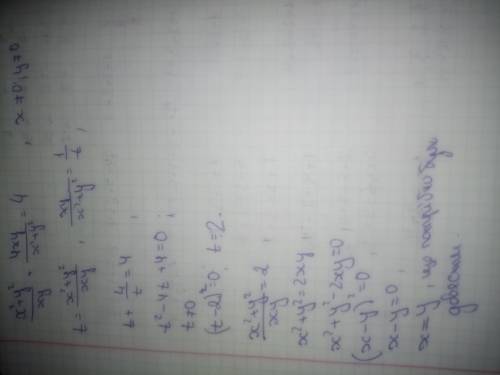 x²+y²/xy + 4xy/x²+y² = 4 , x≠0, y≠0
t = x²+y²/xy , xy/x²+y² = 1/t ,
t + 4/t = 4 ,
t² - 4t + 4 = 0 ;
t≠0
(t-2)² = 0 t = 2.
x²+y²/xy = 2 ,
x²+y² = 2xy ,
x²+y²-2xy=0 ,
(x-y)² = 0 ,
x-y=0 ,
x = y , що потрібно було
довести.